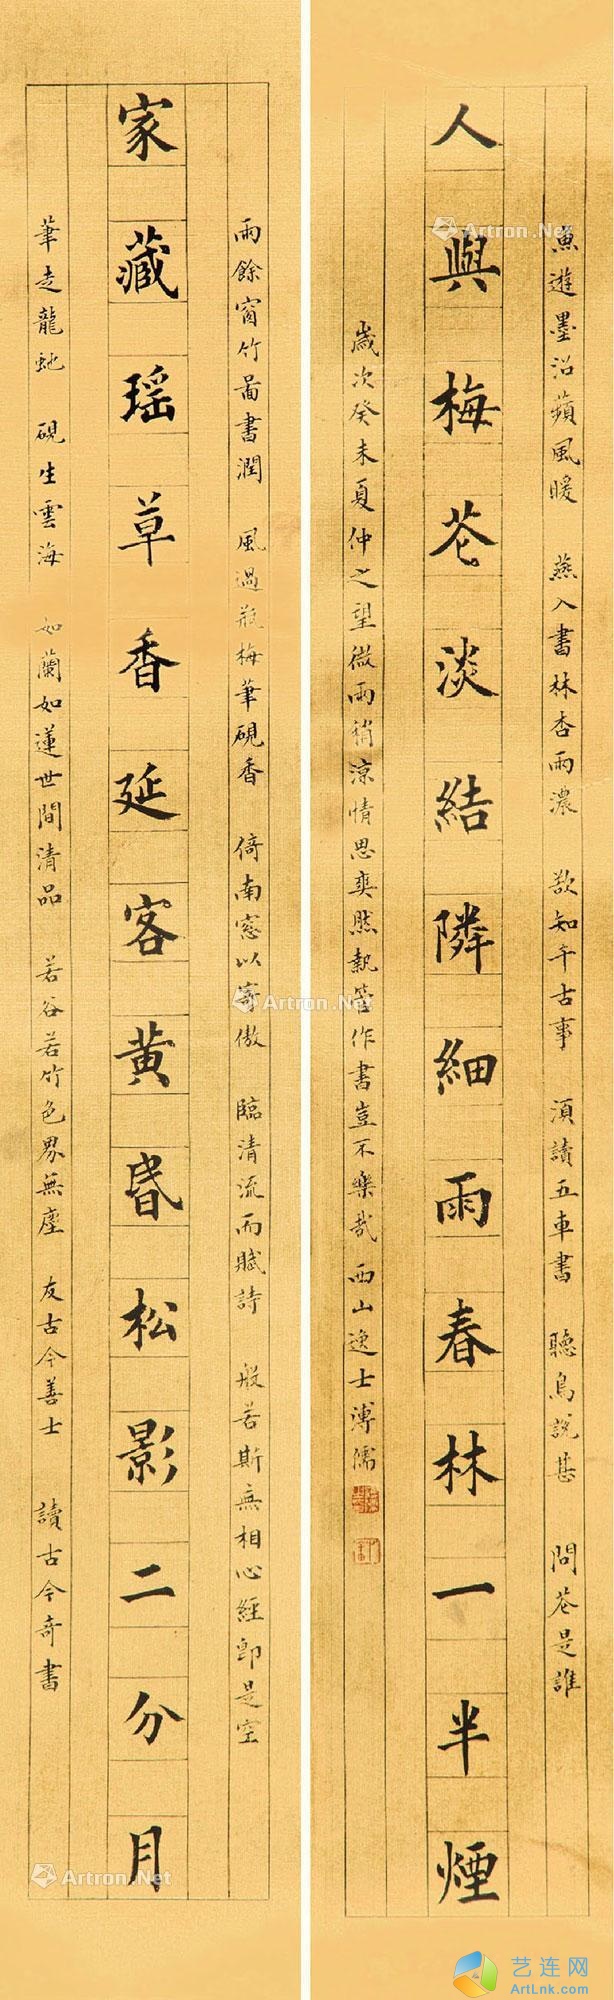 魚遊墨沼蘋風暖　燕入書林杏雨濃　欲知千古事　須讀五車書　聽鳥說甚　問花是誰
人與梅花淡結隣細雨春林一半煙
歲次癸未夏仲之望微雨稍涼情思爽然執管作書豈不樂哉　西山逸士溥儒
雨餘窗竹啚書潤　風過瓶梅筆硯香　倚南窓以寄傲　臨清流而賦詩　般若斯無相心經即是空
家藏瑶草香延客黄昏松影二分月
筆走龍虵　硯生雲海　如蘭如蓮世間清品　若谷若竹色界無塵　友古今善士　讀古今奇書
Artron.Net
Artron.Net
Artron.Net
Artron.Net
Artron.Net
Artron.Net
艺连网
ArtLnk.com